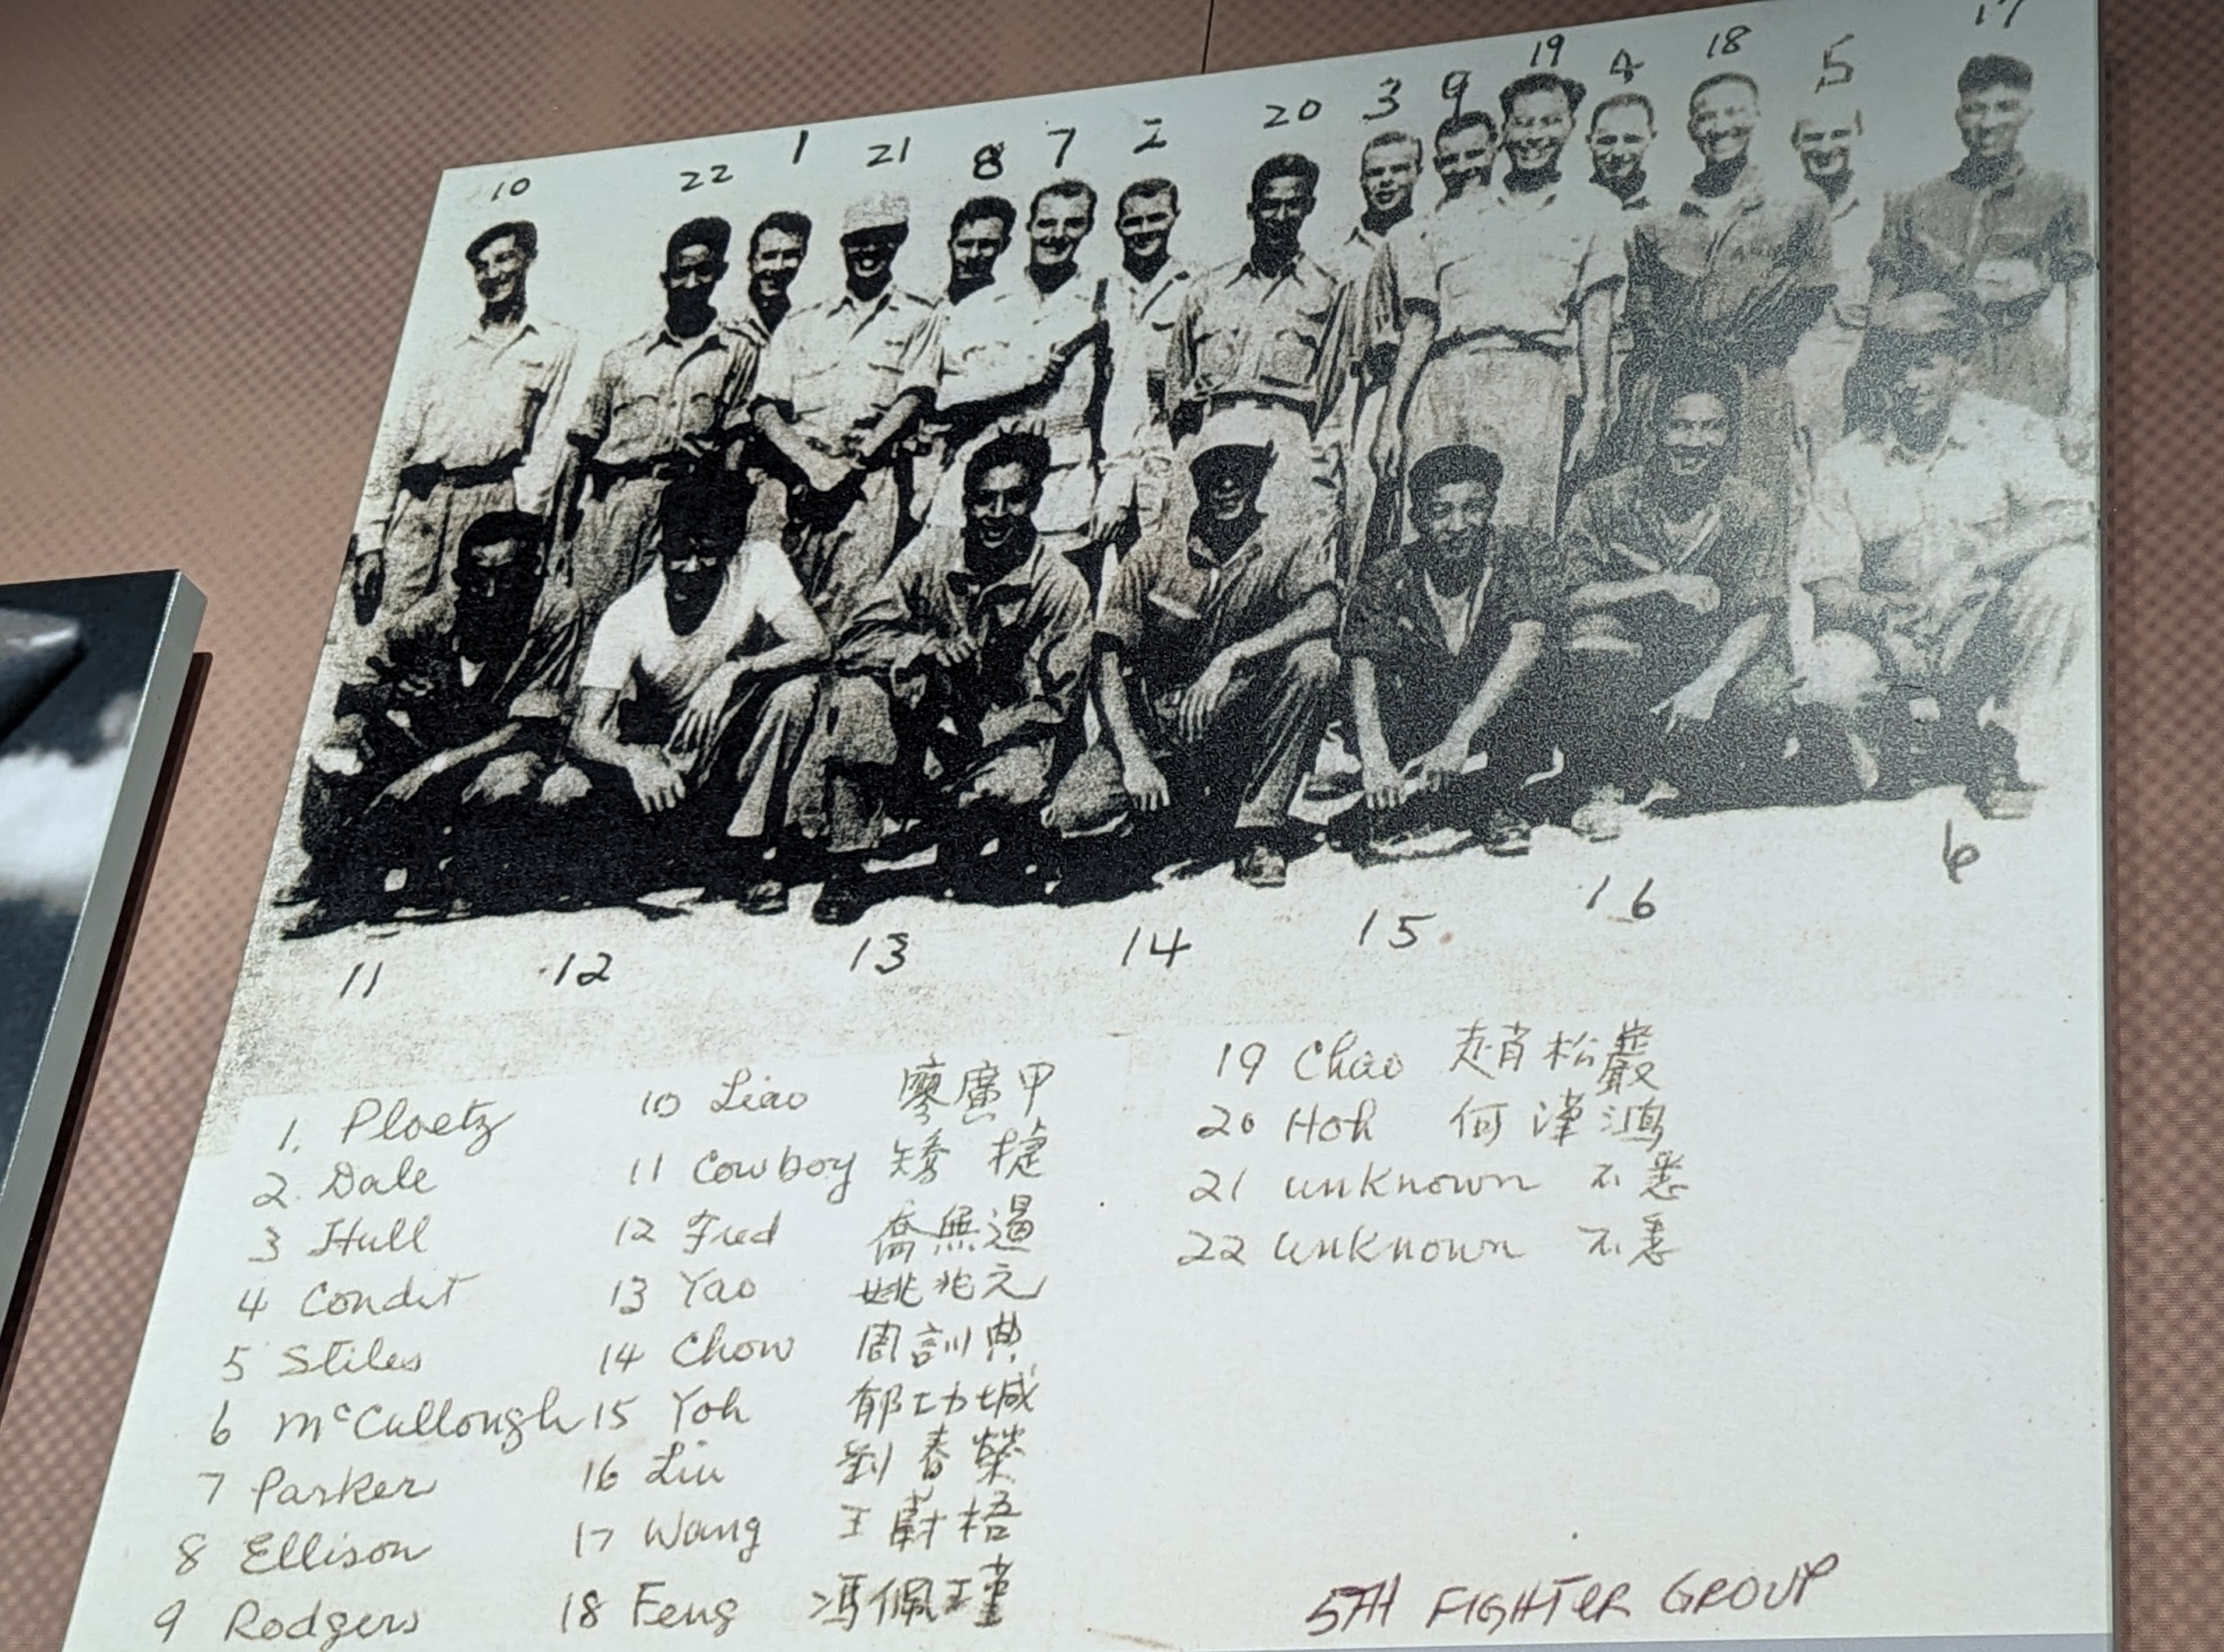 17
19
18
4
5
3
9
20
1
21
8
7
2
22
10
6
16
15
14
13
12
11
1. Ploetz
2. Dale
3 Hull
4 Condit
5 Stiles
6 McCullough
7 Parker
8 Ellison
9 Rodgers
10 Liao 廖廣甲
11 Cowboy 矯捷
12 Fred 喬無遏
13 Yao 姚兆元
14 Chow 周訓典
15 Yoh 郁功城
16 Liu 劉春榮
17 Wang 王蔚梧
18 Feng 馮佩瑾
19 Chao 趙松巖
20 Hoh 何漢鴻
21 unknown 不悉
22 unknown 不悉
5TH FIGHTER GROUP